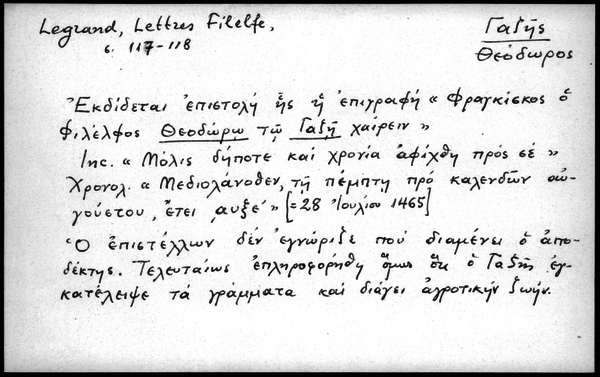 Legrand, Lettres Filelfe,
σ. 117-118
Γαζῆς
Θεόδωρος
Ἐκδίδεται ἐπιστολή ἧς ἡ ἐπιγραφή « Φραγκίσκος ὁ
Φιλέλφος Θεοδώρῳ τῷ Γαζῇ χαίρειν »
Inc. « Μόλις δήποτε καί χρονία ἀφίχθη πρός σέ »
Χρονολ. « Μεδιολάνοθεν, τῇ πέμπτῃ πρό καλενδῶν αὐ-
γούστου, ἔτει ͵αυξε´ » [= 28 Ἰουλίου 1465]
Ὁ ἐπιστέλλων δέν ἐγνώριζε πού διαμένει ὁ ἀπο-
δέκτης. Τελευταίως ἐπληροφορήθη ὅμως ὅτι ὁ Γαζῆς ἐγ-
κατέλειψε τά γράμματα καί διάγει ἀγροτικήν ζωήν.